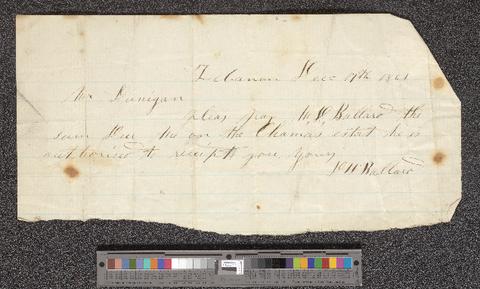 Lebanon Dec 19th 1861
Mr Dunigan
pleas pay W H Ballard the
sum Due me on the estat he is
authorised to receipt you yours
H Ballard